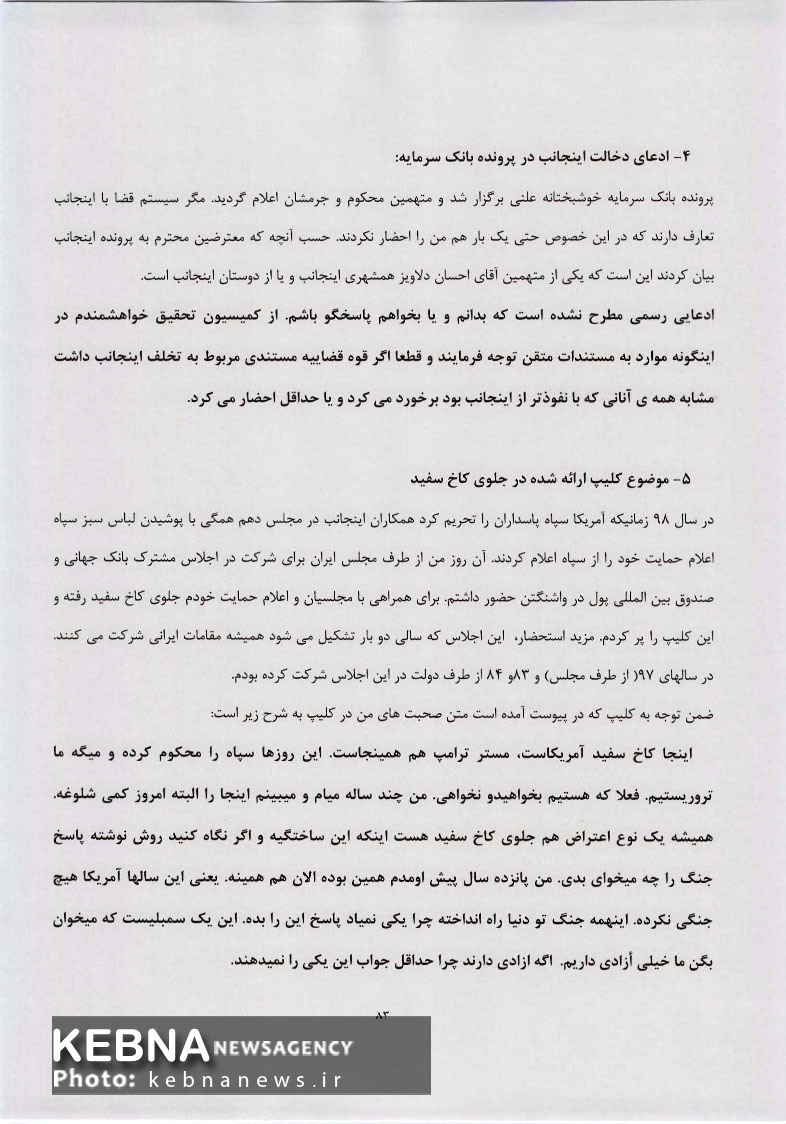 ۴- ادعای دخالت اینجانب در پرونده بانک سرمایه:
پرونده بانک سرمایه خوشبختانه علنی برگزار شد و متهمین محکوم و جرمشان اعلام گردید. مگر سیستم قضا با اینجانب
تعارف دارند که در این خصوص حتی یک بار هم من را احضار نکردند. حسب آنچه که معترضین محترم به پرونده اینجانب
بیان کردند این است که یکی از متهمین آقای احسان دلاویز همشهری اینجانب و یا از دوستان اینجانب است.
ادعایی رسمی مطرح نشده است که بدانم و یا بخواهم پاسخگو باشم. از کمیسیون تحقیق خواهشمندم در
اینگونه موارد به مستندات متقن توجه فرمایند و قطعا اگر قوه قضاییه مستندی مربوط به تخلف اینجانب داشت
مشابه همه ی آنانی که با نفوذتر از اینجانب بود برخورد می کرد و یا حداقل احضار می کرد.
۵- موضوع کلیپ ارائه شده در جلوی کاخ سفید
در سال ۹۸ زمانیکه آمریکا سپاه پاسداران را تحریم کرد همکاران اینجانب در مجلس دهم همگی با پوشیدن لباس سبز سپاه
اعلام حمایت خود را از سپاه اعلام کردند. آن روز من از طرف مجلس ایران برای شرکت در اجلاس مشترک بانک جهانی و
صندوق بین المللی پول در واشنگتن حضور داشتم. برای همراهی با مجلسیان و اعلام حمایت خودم جلوی کاخ سفید رفته و
این کلیپ را پر کردم. مزید استحضار، این اجلاس که سالی دو بار تشکیل می شود همیشه مقامات ایرانی شرکت می کنند.
در سالهای ۹۷( از طرف مجلس) و ۸۳و ۸۴ از طرف دولت در این اجلاس شرکت کرده بودم.
ضمن توجه به کلیپ که در پیوست آمده است متن صحبت های من در کلیپ به شرح زیر است:
اینجا کاخ سفید آمریکاست، مستر ترامپ هم همینجاست. این روزها سپاه را محکوم کرده و میگه ما
تروریستیم. فعلا که هستیم بخواهیدو نخواهی. من چند ساله میام و میبینم اینجا را البته امروز کمی شلوغه.
همیشه یک نوع اعتراض هم جلوی کاخ سفید هست اینکه این ساختگیه و اگر نگاه کنید روش نوشته پاسخ
جنگ را چه میخوای بدی. من پانزده سال پیش اومدم همین بوده الان هم همینه. یعنی این سالها آمریکا هیچ
جنگی نکرده. اینهمه جنگ تو دنیا راه انداخته چرا یکی نمیاد پاسخ این را بده. این یک سمبلیست که میخوان
بگن ما خیلی أزادی داریم. اگه ازادی دارند چرا حداقل جواب این یکی را نمیدهند.
۸۳
KEBNA NEWSAGENCY
Photo: kebnanews.ir